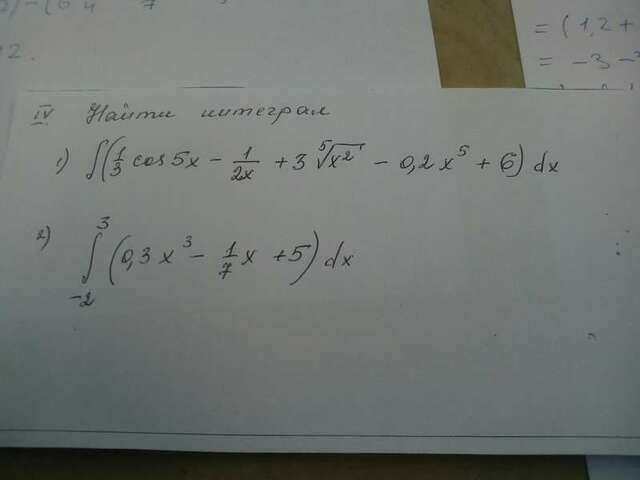 = (1,2 +
2.
= -3 -
IV Найти интеграл
1) ∫(1/3 cos 5x - 1/2x + 3 ⁵√x² - 0,2x⁵ + 6) dx
2) ∫₋₂³ (0,3x³ - 1/7 x + 5) dx